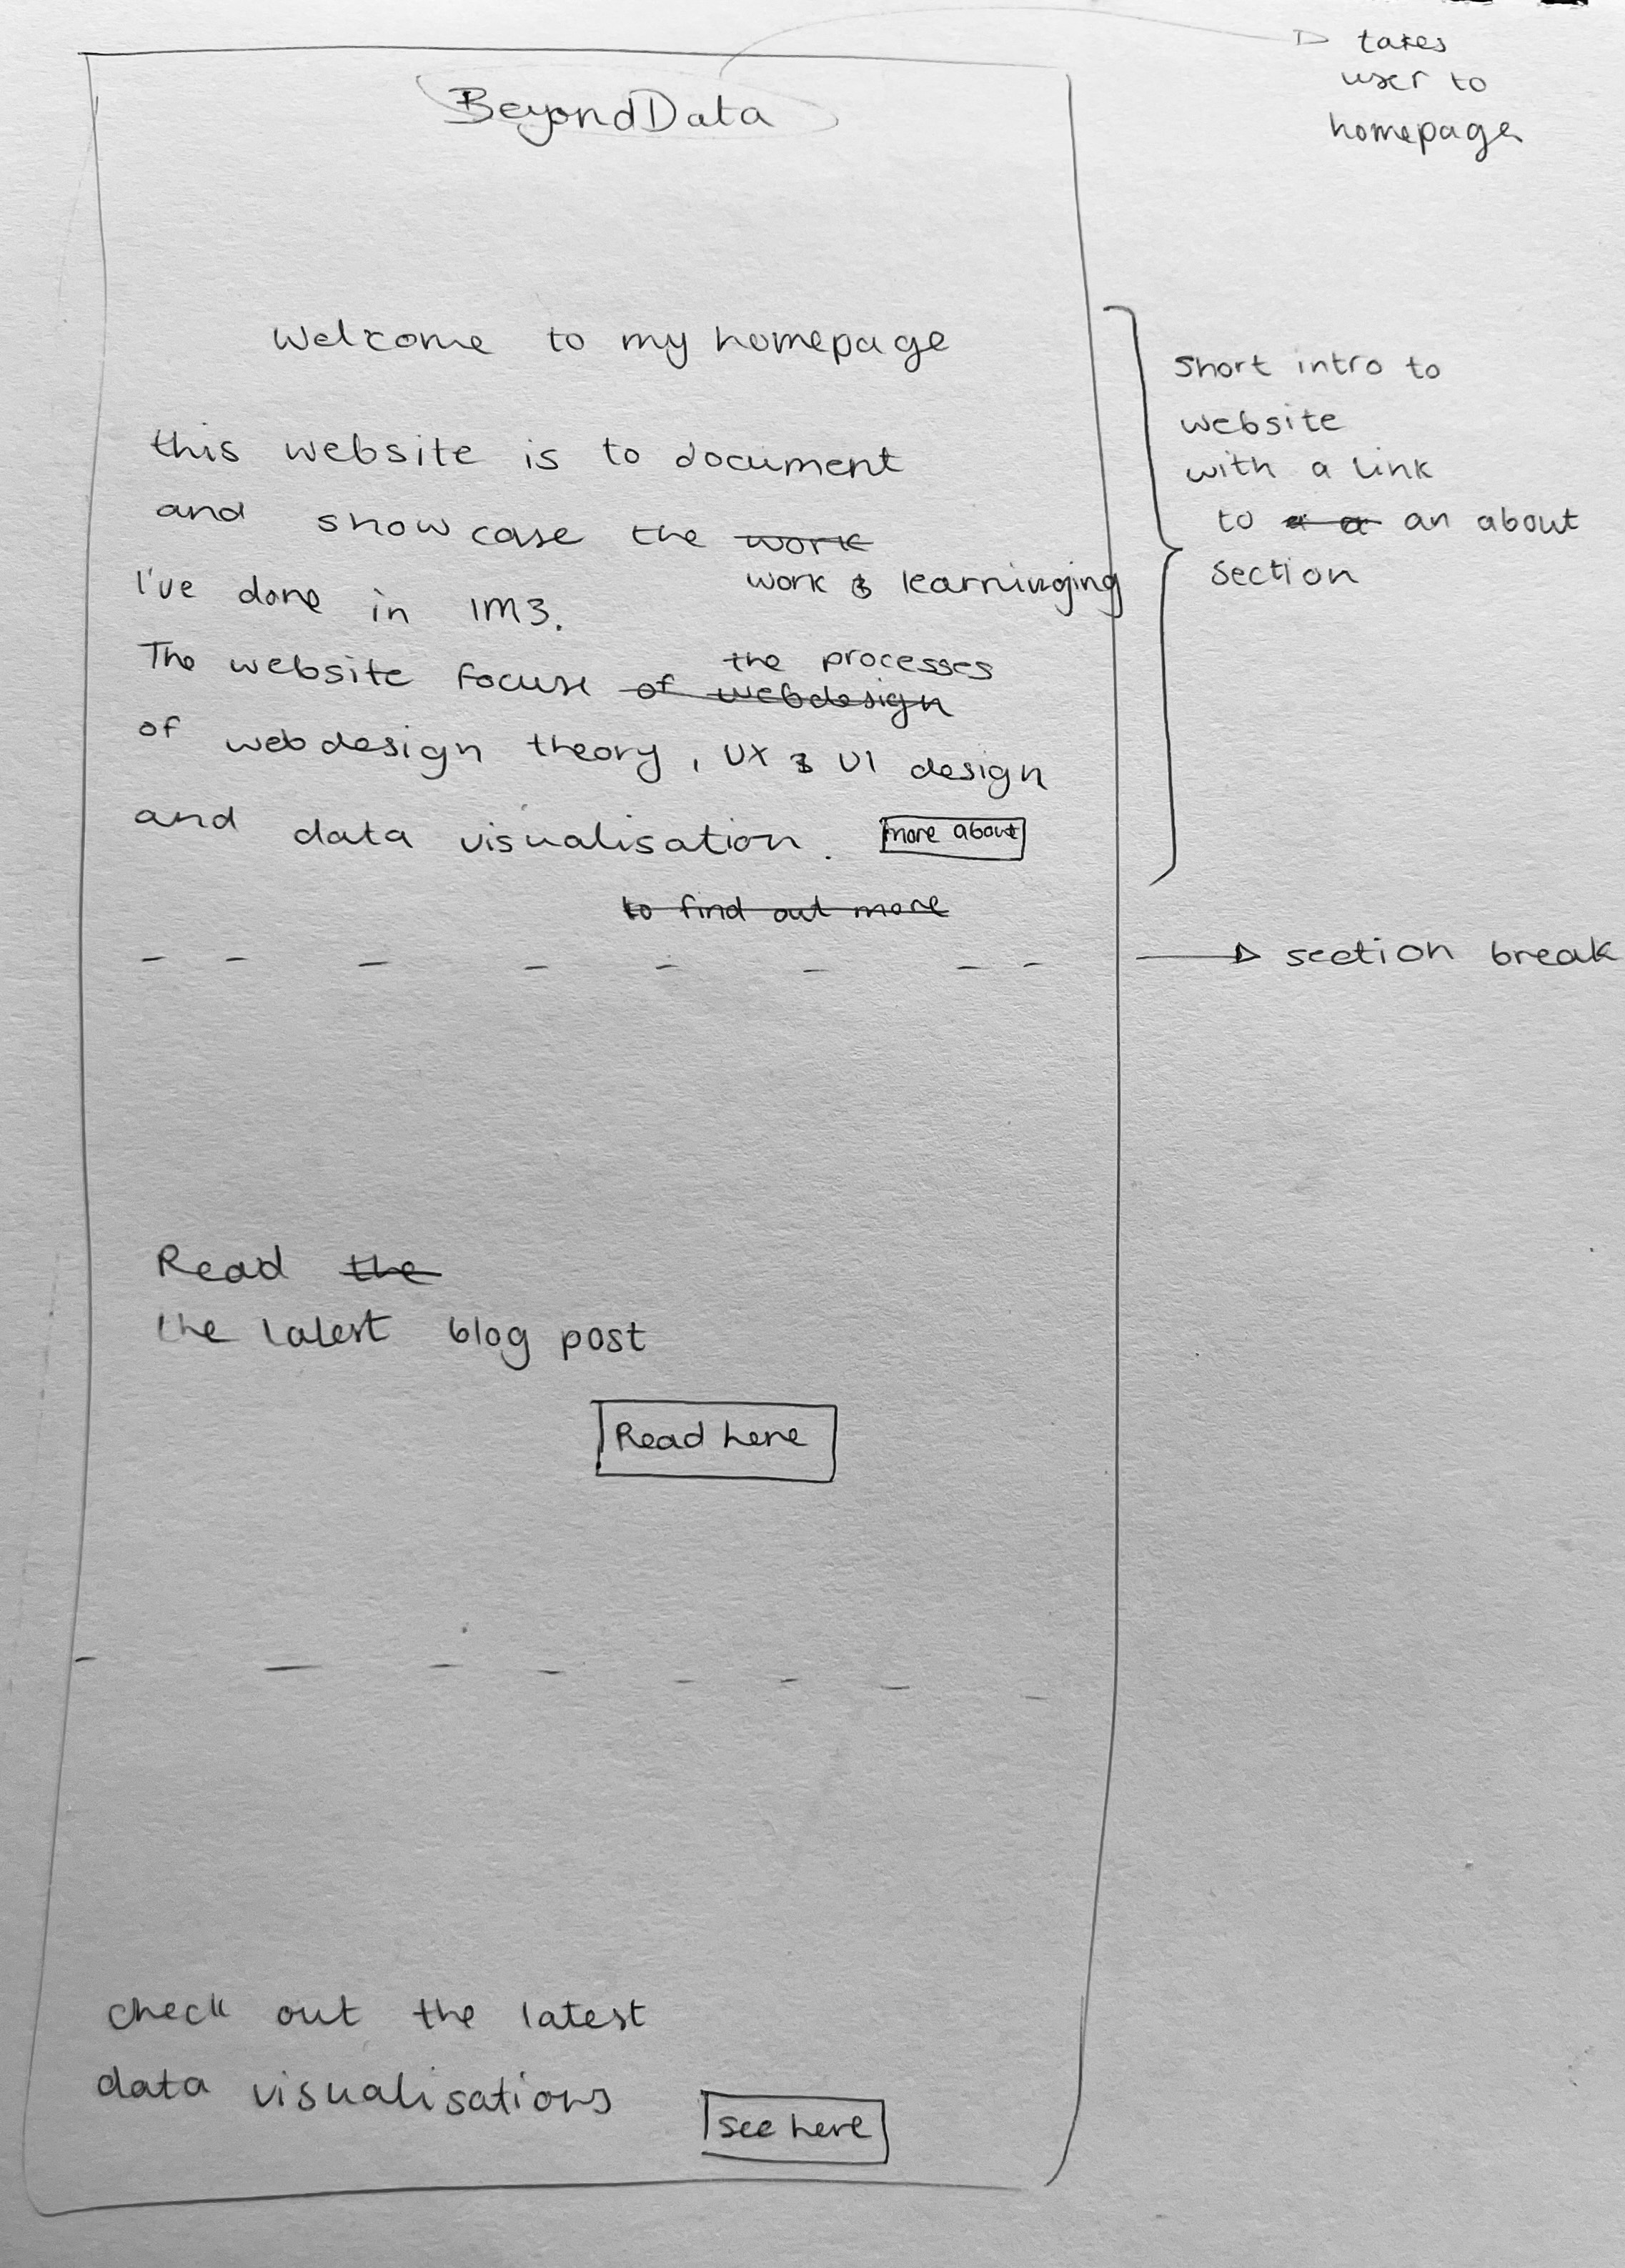 BeyondData
takes
user to
homepage
Welcome to my homepage
this website is to document
and showcase the work
work & learninging
I've done in IM3.
The website focuse of webdesign
the processes
of webdesign theory, UX & UI design
and data visualisation. more about
to find out more
short intro to
website
with a link
to a a an about
section
section break
Read the
the latest blog post
Read here
check out the latest
data visualisations
see here